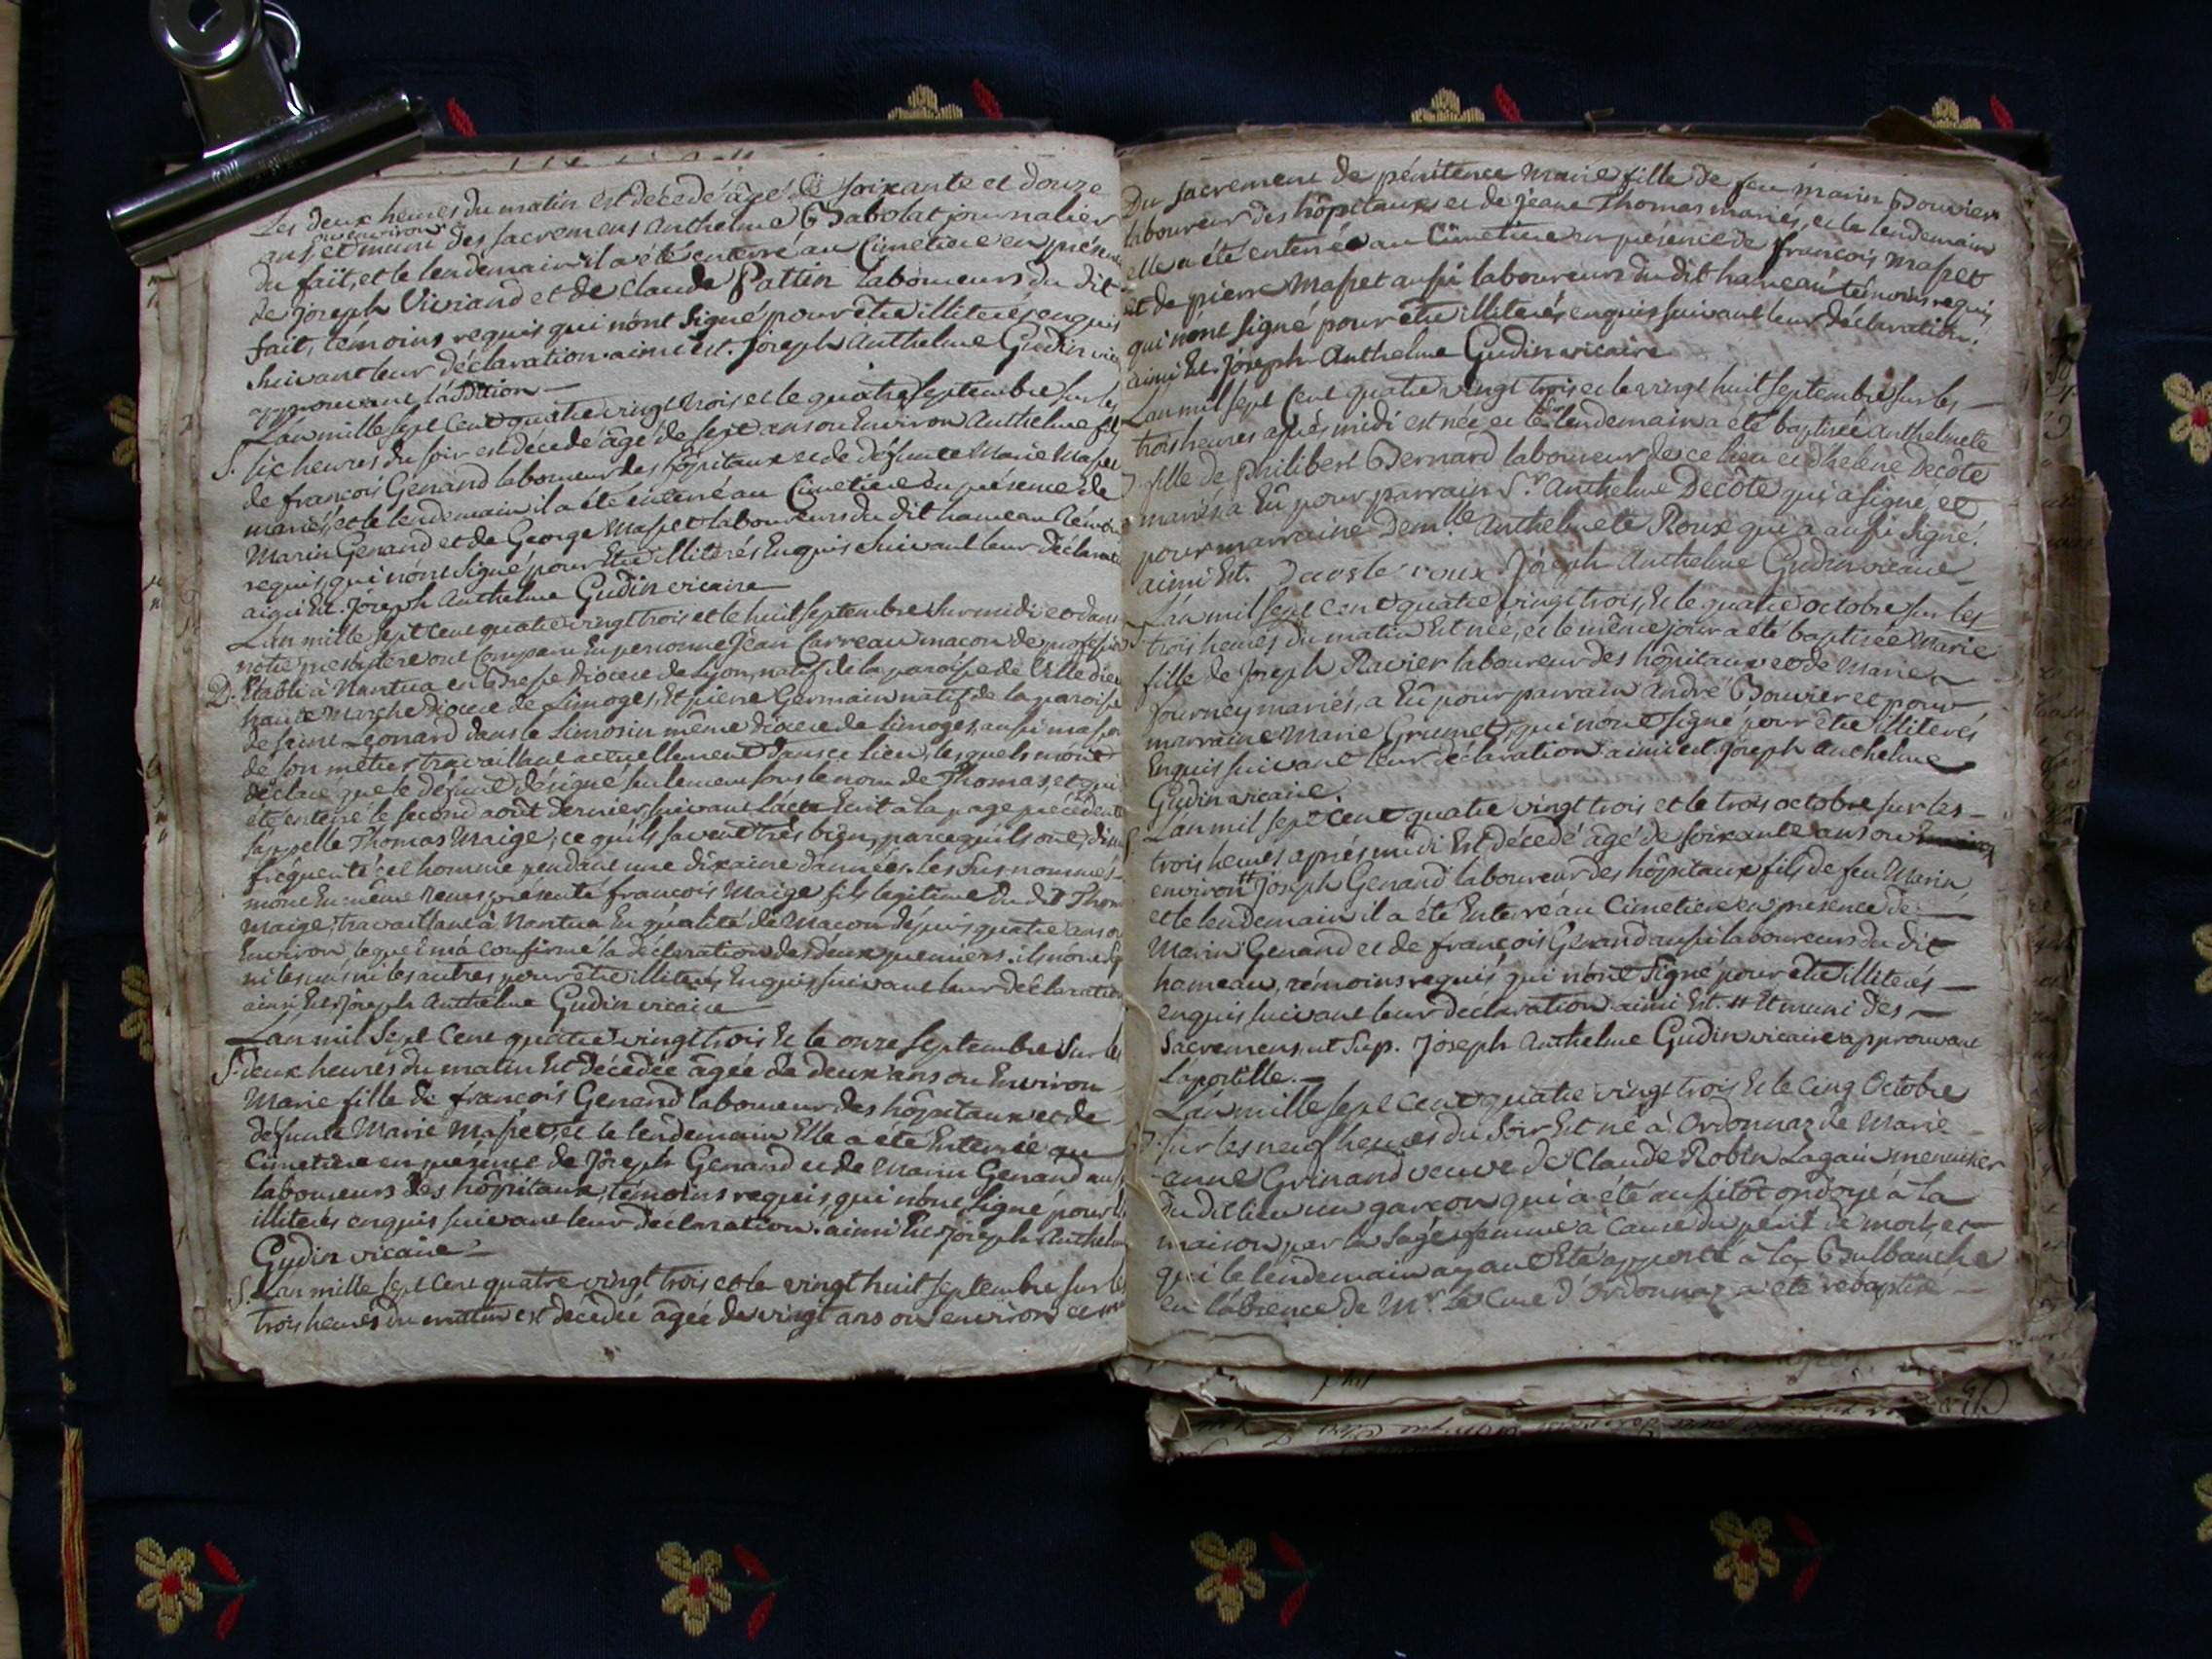 Les deux heures du matin est décédé âgé de soixante et douze
ou environ
ans et muni des sacremens Anthelme Babolat journalier
du fait, et le lendemain il a été enterré au Cimetiere en présence
de Joseph Viviand et de Claude Pattin laboureurs du dit
fait, témoins requis qui n'ont signé pour être illiterés enquis
suivant leur déclaration. ainsi est. Joseph Anthelme Gudin vic
approuvant l'addition
L'an mille sept cent quatre vingt trois et le quatre septembre sur les
S. six heures du soir est décédé âgé de sept ans ou Environ Anthelme fils
de françois Génand laboureur des hôpitaux et de défunte Marie Masset
mariés, et le lendemain il a été enterré au Cimetiere en présence de
Marin Genand et de George Masset laboureurs du dit hameau témoins
requis, qui n'ont signé pour Etre illiterés Enquis suivant leur déclarat
ainsi Est. Joseph Anthelme Gudin vicaire
L'an mille sept cent quatre vingt trois et le huit septembre sur midi et dans
notre presbitere ont Comparu En personne Jean Carreau macon de profession
D. Etabli à Nantua en Bresse diocese de Lyon, natif de la paroisse de Celle dieu
haute Marche diocese de Limoges, Et pierre Germain natif de la paroisse
de saint Leonard dans le Limosin même diocese de Limoges, aussi masson
de son métier travaillant actuellement dans ce lieu, lesquels m'ont
déclaré que le défunt désigné seulement sous le nom de Thomas, et qui
été enterré le second août dernier, suivant l'acte Ecrit à la page précédente
s'appelle Thomas Maige; ce qu'ils savent très bien, parcequ'ils ont, disent
fréquenté cet homme pendant une dixaine d'années. les sus nommés
m'ont En même tems présenté françois Maige fils legitime du dit Thom
Maige, travaillant à Nantua En qualité de Macon depuis quatre ans ou
Environ lequel m'a confirmé la déclaration des deux premiers. ils n'ont sig
ni les uns ni les autres pour être illiterés Enquis suivant leur déclaration
ainsi Est Joseph Anthelme Gudin vicaire
L'an mil sept Cent quatre vingt trois Et le onze septembre sur les
S. deux heures du matin Est décédée âgée de deux ans ou Environ
Marie fille de françois Genend laboureur des hôpitaux et de
défunte Marie Masset, et le lendemain Elle a été Enterrée au
Cimetiere en présence de Joseph Genand et de Marin Genand aussi
laboureurs des hôpitaux, témoins requis, qui n'ont signé pour être
illiterés enquis suivant leur déclaration. ainsi Est Joseph Anthelm
Gudin vicaire
S. L'an mille sept cent quatre vingt trois et le vingt huit septembre sur les
trois heures du matin est décédée âgée de vingt ans ou environ et munie
Du sacrement de pénitence Marie fille de feu Marin Bouvier
laboureur des hôpitaux et de jeane Thomas mariés, et le lendemain
elle a été enterrée au Cimetiere en présence de françois Masset
et de pierre Masset aussi laboureurs du dit hameau témoins requis
qui n'ont signé pour être illiterés enquis suivant leur déclaration.
ainsi Est. Joseph Anthelme Gudin vicaire
L'an mil sept Cent quatre vingt trois et le vingt huit septembre sur les
trois heures après midi est née et le lendemain a été baptisée Anthelmete
fille de philibert Bernard laboureur de ce lieu et d'helene Decôte
mariés, a Eû pour parrain Sr. Anthelme Decôte qui a signé, et
pour marraine Demlle. Anthelmete Roux qui a aussi signé.
ainsi Est. Decoste roux Joseph Anthelme Gudin vicaire
L'an mil sept cent quatre vingt trois, Et le quatre octobre sur les
trois heures du matin Est née, et le même jour a été baptisée Marie
fille de Joseph Ravier laboureur des hôpitaux et de Marie
Journey mariés, a Eû pour parrain André Bouvier et pour
marraine Marie Grumet, qui n'ont signé pour être illiterés
Enquis suivant leur déclaration ainsi est. Joseph Anthelme
Gudin vicaire.
L'an mil sept Cent quatre vingt trois et le trois octobre sur les
trois heures après midi Est décédé âgé de soixante ans ou
environ # Joseph Genand laboureur des hôpitaux fils de feu Marin
et le lendemain il a été Enterré au Cimetiere en présence de
Marin Genand et de françois Genand aussi laboureurs du dit
hameau, témoins requis, qui n'ont signé pour être illiterés
enquis suivant leur déclaration ainsi Est. # Et muni des
Sacremens ut sup. Joseph Anthelme Gudin vicaire approuvant
l'apostille.
L'an mille sept cent quatre vingt trois Et le Cinq Octobre
sur les neuf heures du soir Est né à Ordonnaz de Marie
anne Grinand veuve de Claude Robin Lagain menuisier
du dit lieu un garcon qui a été aussitôt ondoyé à la
maison par la sage femme à cause du péril de mort, et
qui le lendemain ayant Eté apporté à la Bulbanche
en l'absence de Mr. le Curé d'Ordonnaz a été rebaptisé